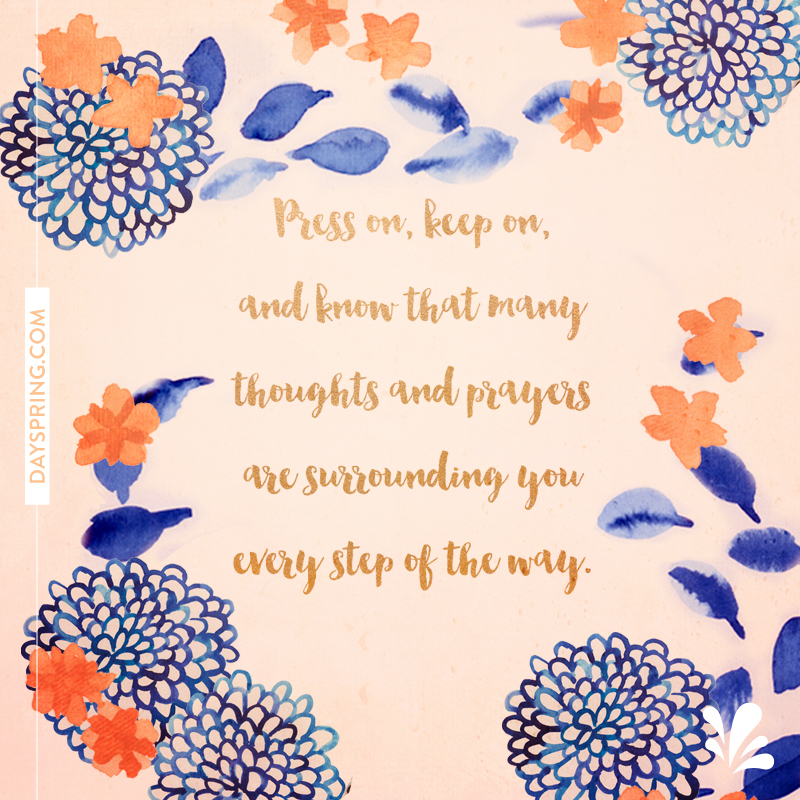 Press on, keep on,
and know that many
thoughts and prayers
are surrounding you
every step of the way.
DAYSPRING.COM